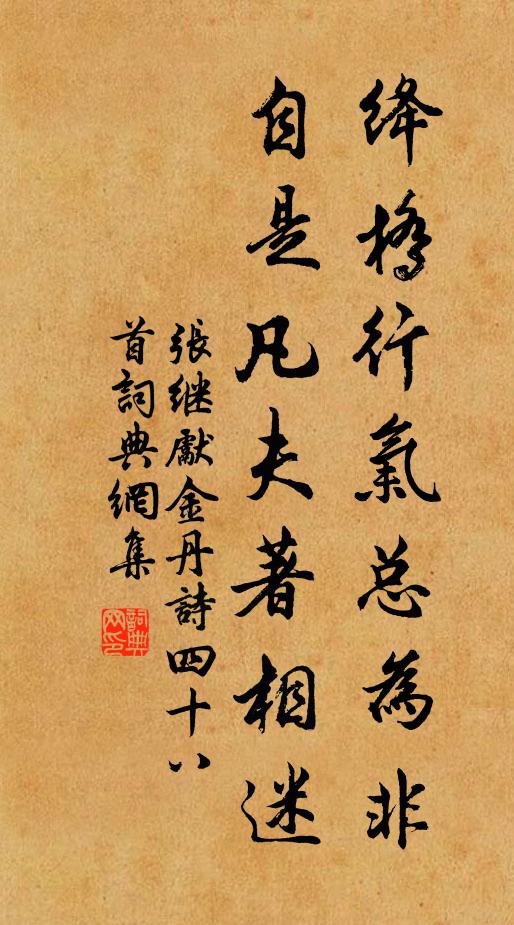 絳橋行氣总為非
自是凡夫著相迷
張继獻金丹詩四十八
首詞典網集
詞典
网印